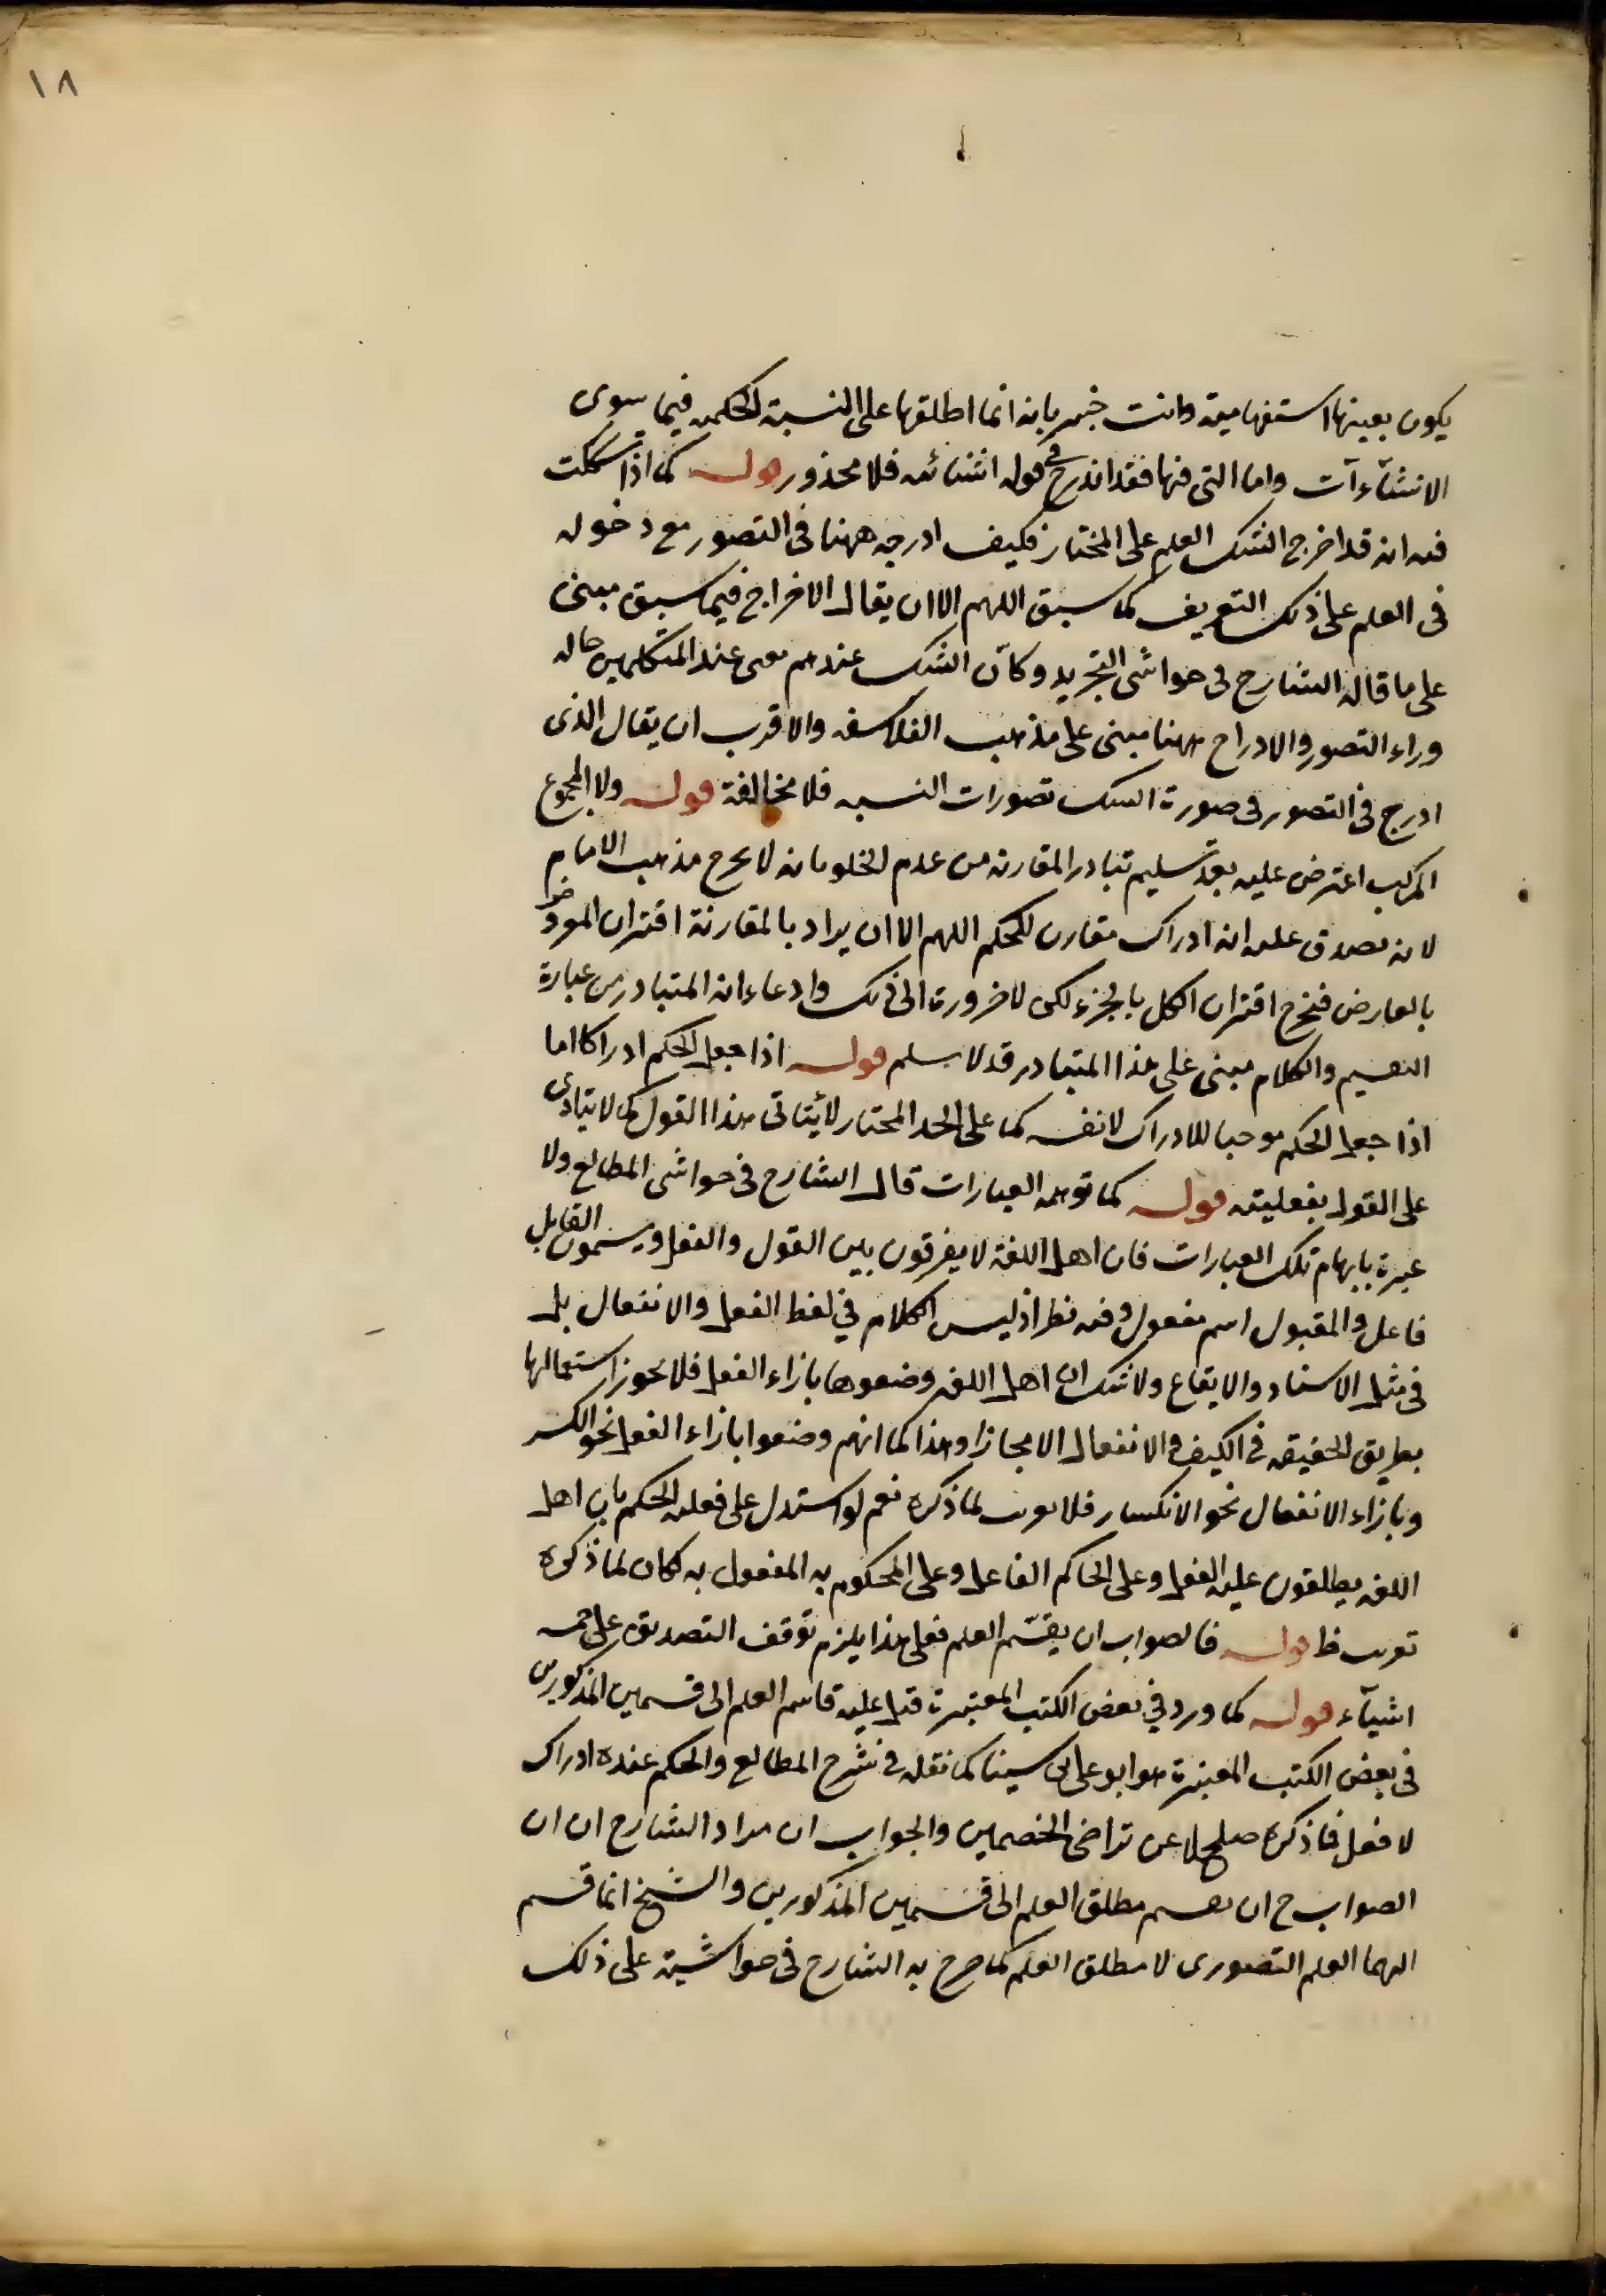 ١٨
يكون بعينها استفهامية وانت خبير بانه انما اطلقها على النسبة الحكمية فيما سوى
الانشآءآت واما التى فيها فقد اندرج فى قوله انشائية فلا محذور قوله كما اذا شككت
فيه انه قد اخرج الشك العلم على المختار فكيف ادرجه ههنا فى التصور مع دخوله
فى العلم على ذلك التعريف كما سبق اللهم الا ان يقال الاخراج فيما سبق مبنى
على ما قاله الشارح فى حواشى التجريد وكانّ الشك عندهم معنى عند المتكلمين حاله
وراء التصور والادراج ههنا مبنى على مذهب الفلاسفه والاقرب ان يقال الذى
ادرج فى التصور فى صورة الشك تصورات النسبه فلا مخالفة قوله ولا المجموع
المركب اعترض عليه بعد تسليم تبادر المقارنه من عدم الخلو بانه لا يخرج مذهب الامام
لانه يصدق عليه انه ادراك مقارن للحكم اللهم الا ان يراد بالمقارنة اقتران المعروض
بالعارض فيخرج اقتران الكل بالجزء لكن لا ضرورة الى ذلك وادعاء انه المتبادر من عبارة
التقسيم والكلام مبنى على هذا المتبادر قد لا يسلم قوله اذا جعل الحكم ادراكا اما
اذا جعل الحكم موجبا للادراك لا نفسه كما على الحد المختار لا يتأتى هذا القول كما لا يتأدى
على القول بفعليته قوله كما توهمه العبارات قال الشارح فى حواشى المطالع ولا
عبرة بايهام تلك العبارات فان اهل اللغة لا يفرقون بين القول والفعل ويسمون القابل
فاعلا والمقبول اسم مفعول وفيه نظر اذ ليس الكلام في لفظ الفعل والانفعال بل
فى مثل الاسناد والايقاع ولا شك ان اهل اللغه وضعوها بازاء الفعل فلا يجوز استعمالها
بطريق الحقيقه فى الكيف والانفعال الا مجازا وهذا كما انهم وضعوا بازاء الفعل نحو الكسر
وبازاء الانفعال نحو الانكسار فلا تقريب لما ذكره نعم لو استدل على فعلية الحكم بان اهل
اللغه يطلقون عليه الفعل وعلى الحاكم الفاعل وعلى المحكوم به المفعول به لكان لما ذكره
تقريب ظ قوله فالصواب ان يقسّم العلم فعلى هذا يلزم توقف التصديق على خمسه
اشيآء قوله كما ورد في بعض الكتب المعتبرة قيل عليه قاسم العلم الى قسمين المذكورين
فى بعض الكتب المعتبرة هو ابو على بن سينا كما نقله فى شرح المطالع والحكم عنده ادراك
لا فعل فما ذكره صلح لا عن تراضى الخصمين والجواب ان مراد الشارح ان ان
الصواب ح ان يقسم مطلق العلم الى قسمين المذكورين والشيخ انما قسم
اليهما العلم التصورى لا مطلق العلم كما صرح به الشارح فى حواشيه على ذلك